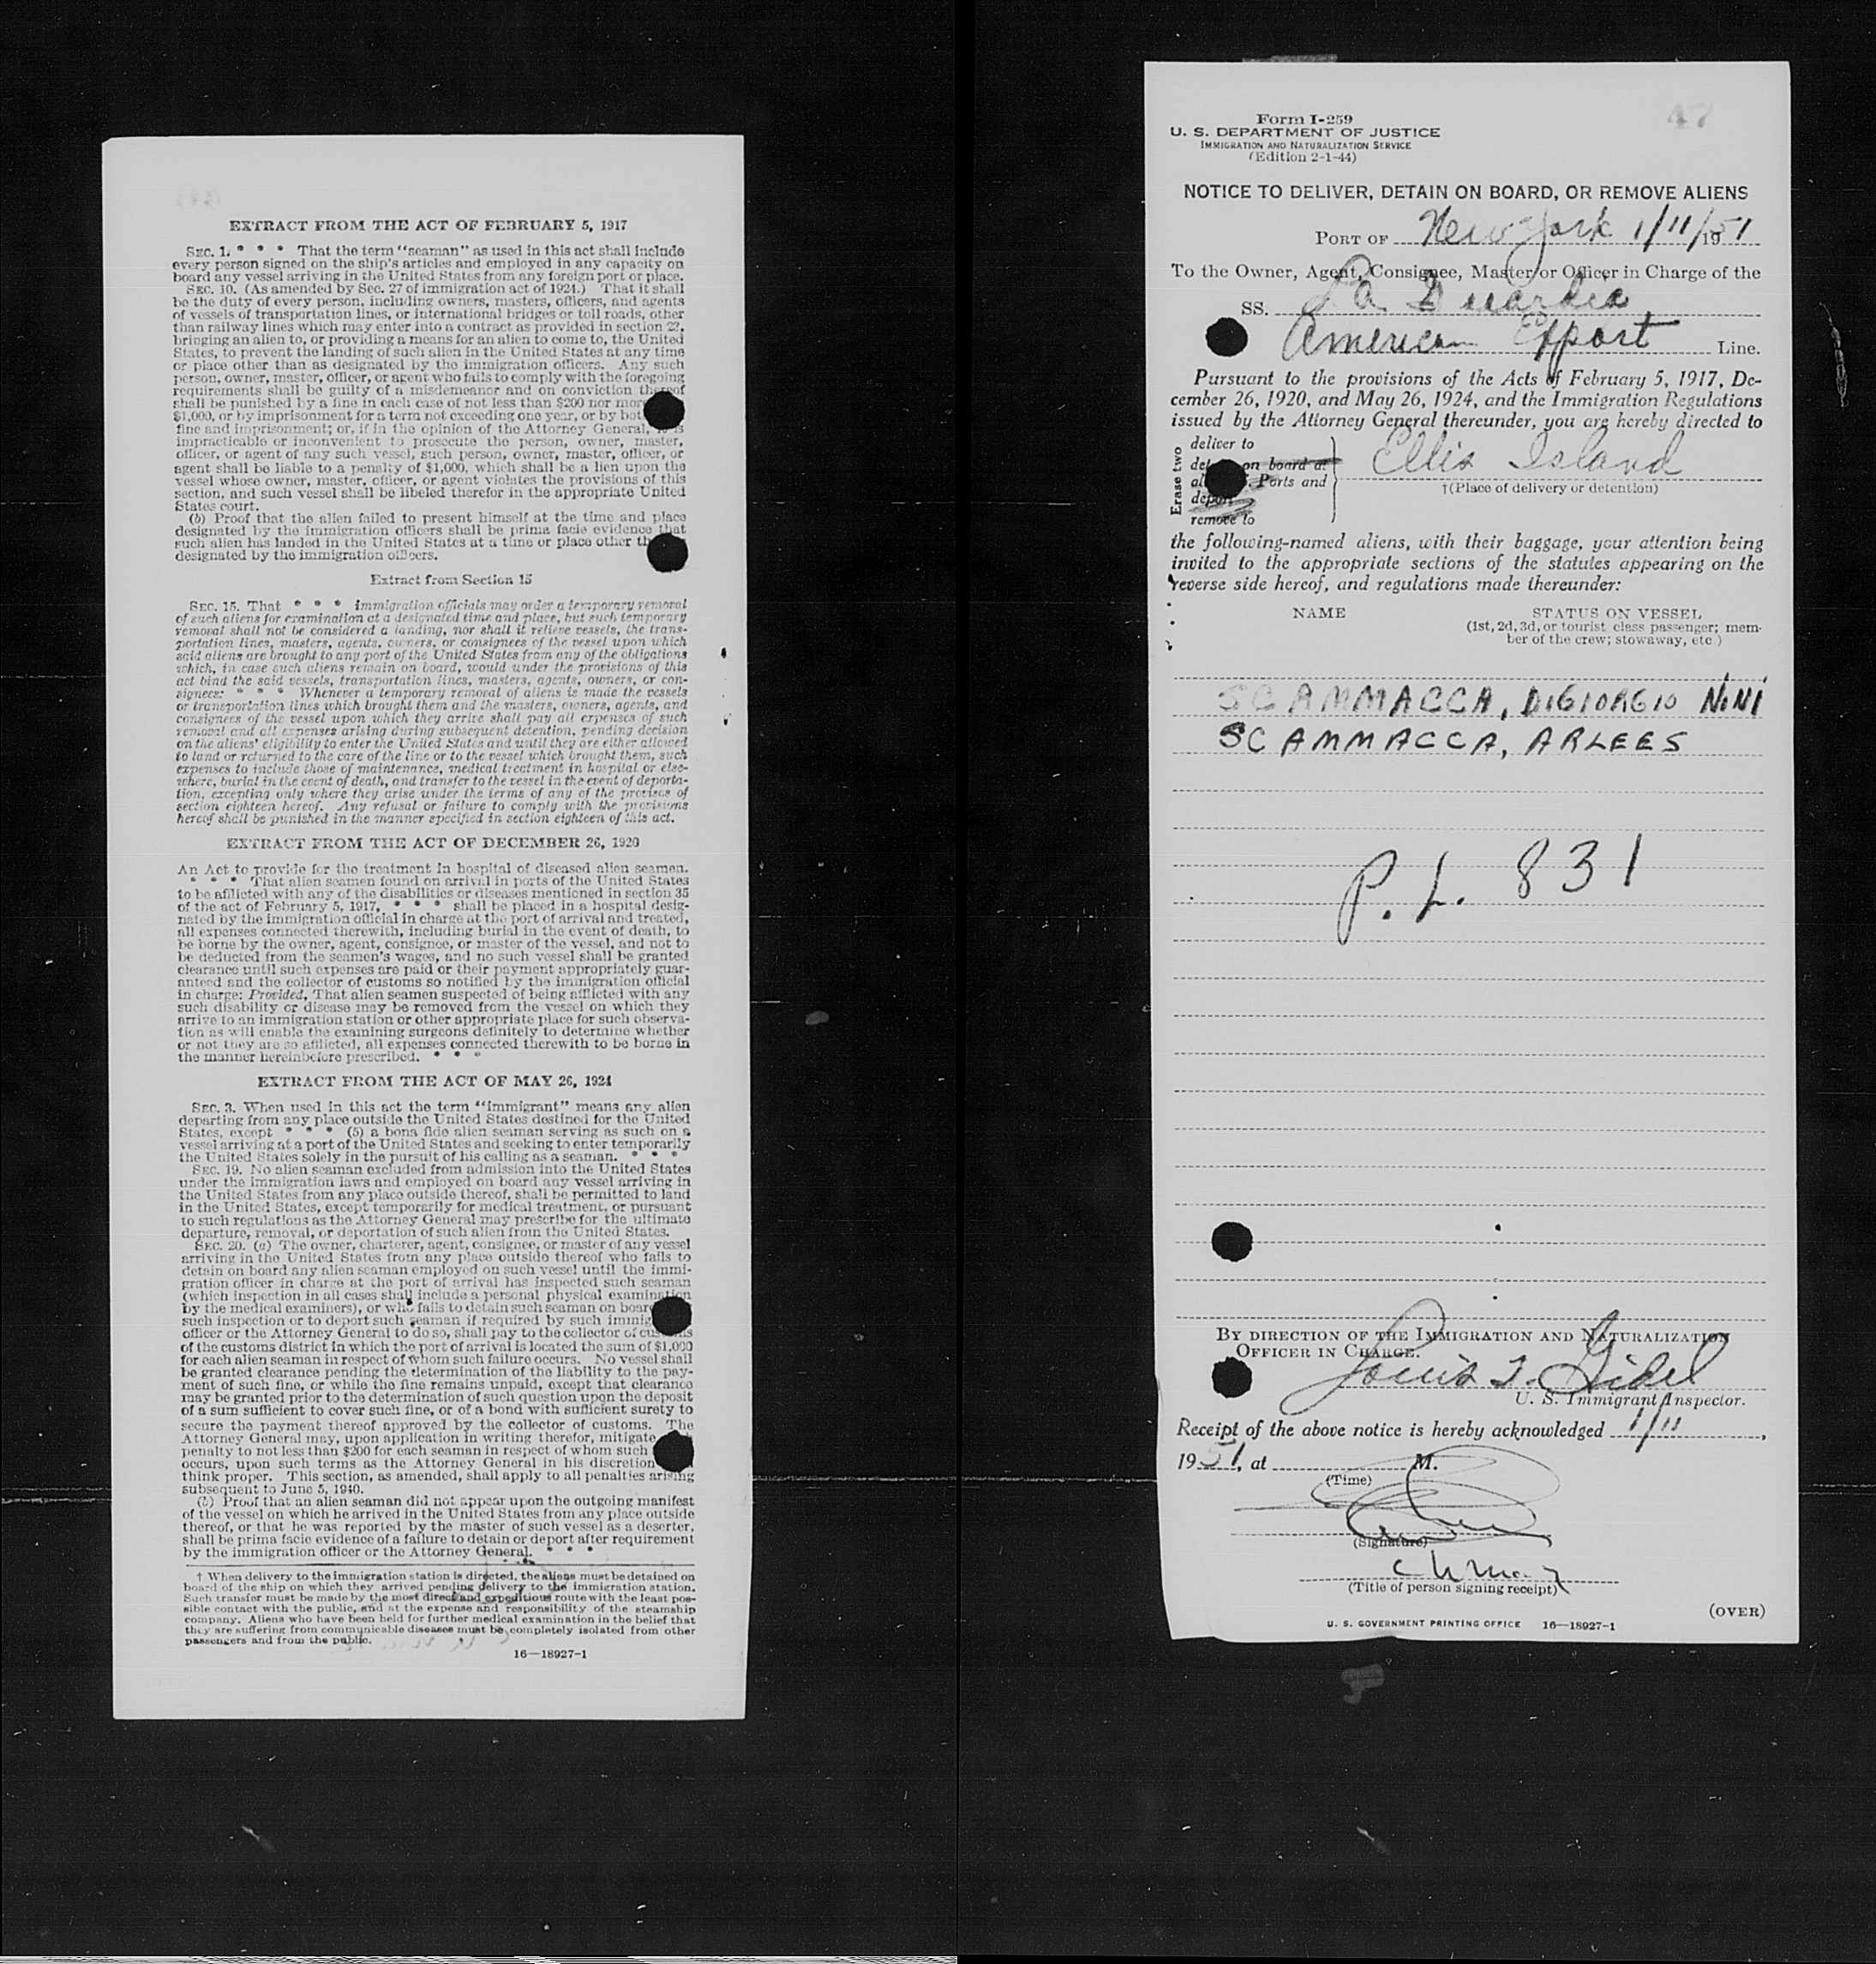 EXTRACT FROM THE ACT OF FEBRUARY 5, 1917
SEC. 1. * * * That the term "seaman" as used in this act shall include
every person signed on the ship's articles and employed in any capacity on
board any vessel arriving in the United States from any foreign port or place.
SEC. 10. (As amended by Sec. 27 of immigration act of 1924.) That it shall
be the duty of every person, including owners, masters, officers, and agents
of vessels of transportation lines, or international bridges or toll roads, other
than railway lines which may enter into a contract as provided in section 23,
bringing an alien to, or providing a means for an alien to come to, the United
States, to prevent the landing of such alien in the United States at any time
or place other than as designated by the immigration officers. Any such
person, owner, master, officer, or agent who fails to comply with the foregoing
requirements shall be guilty of a misdemeanor and on conviction thereof
shall be punished by a fine in each case of not less than $200 nor more
$1,000, or by imprisonment for a term not exceeding one year, or by both
fine and imprisonment; or, if in the opinion of the Attorney General, it is
impracticable or inconvenient to prosecute the person, owner, master,
officer, or agent of any such vessel, such person, owner, master, officer, or
agent shall be liable to a penalty of $1,000, which shall be a lien upon the
vessel whose owner, master, officer, or agent violates the provisions of this
section, and such vessel shall be libeled therefor in the appropriate United
States court.
(b) Proof that the alien failed to present himself at the time and place
designated by the immigration officers shall be prima facie evidence that
such alien has landed in the United States at a time or place other th
designated by the immigration officers.
Extract from Section 15
SEC. 15. That * * * immigration officials may order a temporary removal
of such aliens for examination at a designated time and place, but such temporary
removal shall not be considered a landing, nor shall it relieve vessels, the trans-
portation lines, masters, agents, owners, or consignees of the vessel upon which
said aliens are brought to any port of the United States from any of the obligations
which, in case such aliens remain on board, would under the provisions of this
act bind the said vessels, transportation lines, masters, agents, owners, or con-
signees: * * * Whenever a temporary removal of aliens is made the vessels
or transportation lines which brought them and the masters, owners, agents, and
consignees of the vessel upon which they arrive shall pay all expenses of such
removal and all expenses arising during subsequent detention, pending decision
on the aliens' eligibility to enter the United States and until they are either allowed
to land or returned to the care of the line or to the vessel which brought them, such
expenses to include those of maintenance, medical treatment in hospital or else-
where, burial in the event of death, and transfer to the vessel in the event of deporta-
tion, excepting only where they arise under the terms of any of the provisos of
section eighteen hereof. Any refusal or failure to comply with the provisions
hereof shall be punished in the manner specified in section eighteen of this act.
EXTRACT FROM THE ACT OF DECEMBER 26, 1920
An Act to provide for the treatment in hospital of diseased alien seamen.
* * * That alien seamen found on arrival in ports of the United States
to be afflicted with any of the disabilities or diseases mentioned in section 35
of the act of February 5, 1917, * * * shall be placed in a hospital desig-
nated by the immigration official in charge at the port of arrival and treated,
all expenses connected therewith, including burial in the event of death, to
be borne by the owner, agent, consignee, or master of the vessel, and not to
be deducted from the seamen's wages, and no such vessel shall be granted
clearance until such expenses are paid or their payment appropriately guar-
anteed and the collector of customs so notified by the immigration official
in charge: Provided, That alien seamen suspected of being afflicted with any
such disability or disease may be removed from the vessel on which they
arrive to an immigration station or other appropriate place for such observa-
tion as will enable the examining surgeons definitely to determine whether
or not they are so afflicted, all expenses connected therewith to be borne in
the manner hereinbefore prescribed. * * *
EXTRACT FROM THE ACT OF MAY 26, 1924
SEC. 3. When used in this act the term "immigrant" means any alien
departing from any place outside the United States destined for the United
States, except * * * (5) a bona fide alien seaman serving as such on a
vessel arriving at a port of the United States and seeking to enter temporarily
the United States solely in the pursuit of his calling as a seaman. * * *
SEC. 19. No alien seaman excluded from admission into the United States
under the immigration laws and employed on board any vessel arriving in
the United States from any place outside thereof, shall be permitted to land
in the United States, except temporarily for medical treatment, or pursuant
to such regulations as the Attorney General may prescribe for the ultimate
departure, removal, or deportation of such alien from the United States.
SEC. 20. (a) The owner, charterer, agent, consignee, or master of any vessel
arriving in the United States from any place outside thereof who fails to
detain on board any alien seaman employed on such vessel until the immi-
gration officer in charge at the port of arrival has inspected such seaman
(which inspection in all cases shall include a personal physical examination
by the medical examiners), or who fails to detain such seaman on board
such inspection or to deport such seaman if required by such immig
officer or the Attorney General to do so, shall pay to the collector of customs
of the customs district in which the port of arrival is located the sum of $1,000
for each alien seaman in respect of whom such failure occurs. No vessel shall
be granted clearance pending the determination of the liability to the pay-
ment of such fine, or while the fine remains unpaid, except that clearance
may be granted prior to the determination of such question upon the deposit
of a sum sufficient to cover such fine, or of a bond with sufficient surety to
secure the payment thereof approved by the collector of customs. The
Attorney General may, upon application in writing therefor, mitigate
penalty to not less than $200 for each seaman in respect of whom such
occurs, upon such terms as the Attorney General in his discretion
think proper. This section, as amended, shall apply to all penalties arising
subsequent to June 5, 1940.
(b) Proof that an alien seaman did not appear upon the outgoing manifest
of the vessel on which he arrived in the United States from any place outside
thereof, or that he was reported by the master of such vessel as a deserter,
shall be prima facie evidence of a failure to detain or deport after requirement
by the immigration officer or the Attorney General. * * *
† When delivery to the immigration station is directed, the aliens must be detained on
board of the ship on which they arrived pending delivery to the immigration station.
Such transfer must be made by the most direct and expeditious route with the least pos-
sible contact with the public, and at the expense and responsibility of the steamship
company. Aliens who have been held for further medical examination in the belief that
they are suffering from communicable diseases must be completely isolated from other
passengers and from the public.
16—18927-1
47
Form I-259
U. S. DEPARTMENT OF JUSTICE
IMMIGRATION AND NATURALIZATION SERVICE
(Edition 2-1-44)
NOTICE TO DELIVER, DETAIN ON BOARD, OR REMOVE ALIENS
PORT OF New York 1/11/1951
To the Owner, Agent, Consignee, Master or Officer in Charge of the
SS. La Guardia
American Export Line.
Pursuant to the provisions of the Acts of February 5, 1917, De-
cember 26, 1920, and May 26, 1924, and the Immigration Regulations
issued by the Attorney General thereunder, you are hereby directed to
Erase two
deliver to
det on board at
al . Ports and
deport
remove to
Ellis Island
†(Place of delivery or detention)
the following-named aliens, with their baggage, your attention being
invited to the appropriate sections of the statutes appearing on the
reverse side hereof, and regulations made thereunder:
NAME STATUS ON VESSEL
(1st, 2d, 3d, or tourist class passenger; mem-
ber of the crew; stowaway, etc.)
SCAMMACCA, DIGIORGIO NINI
SCAMMACCA, ARLEES
P. L. 831
BY DIRECTION OF THE IMMIGRATION AND NATURALIZATION
OFFICER IN CHARGE.
Louis T. Gidel
U. S. Immigrant Inspector.
Receipt of the above notice is hereby acknowledged 1/11,
1951, at M.
(Time)
(Signature)
(Title of person signing receipt)
(OVER)
U. S. GOVERNMENT PRINTING OFFICE 16—18927-1